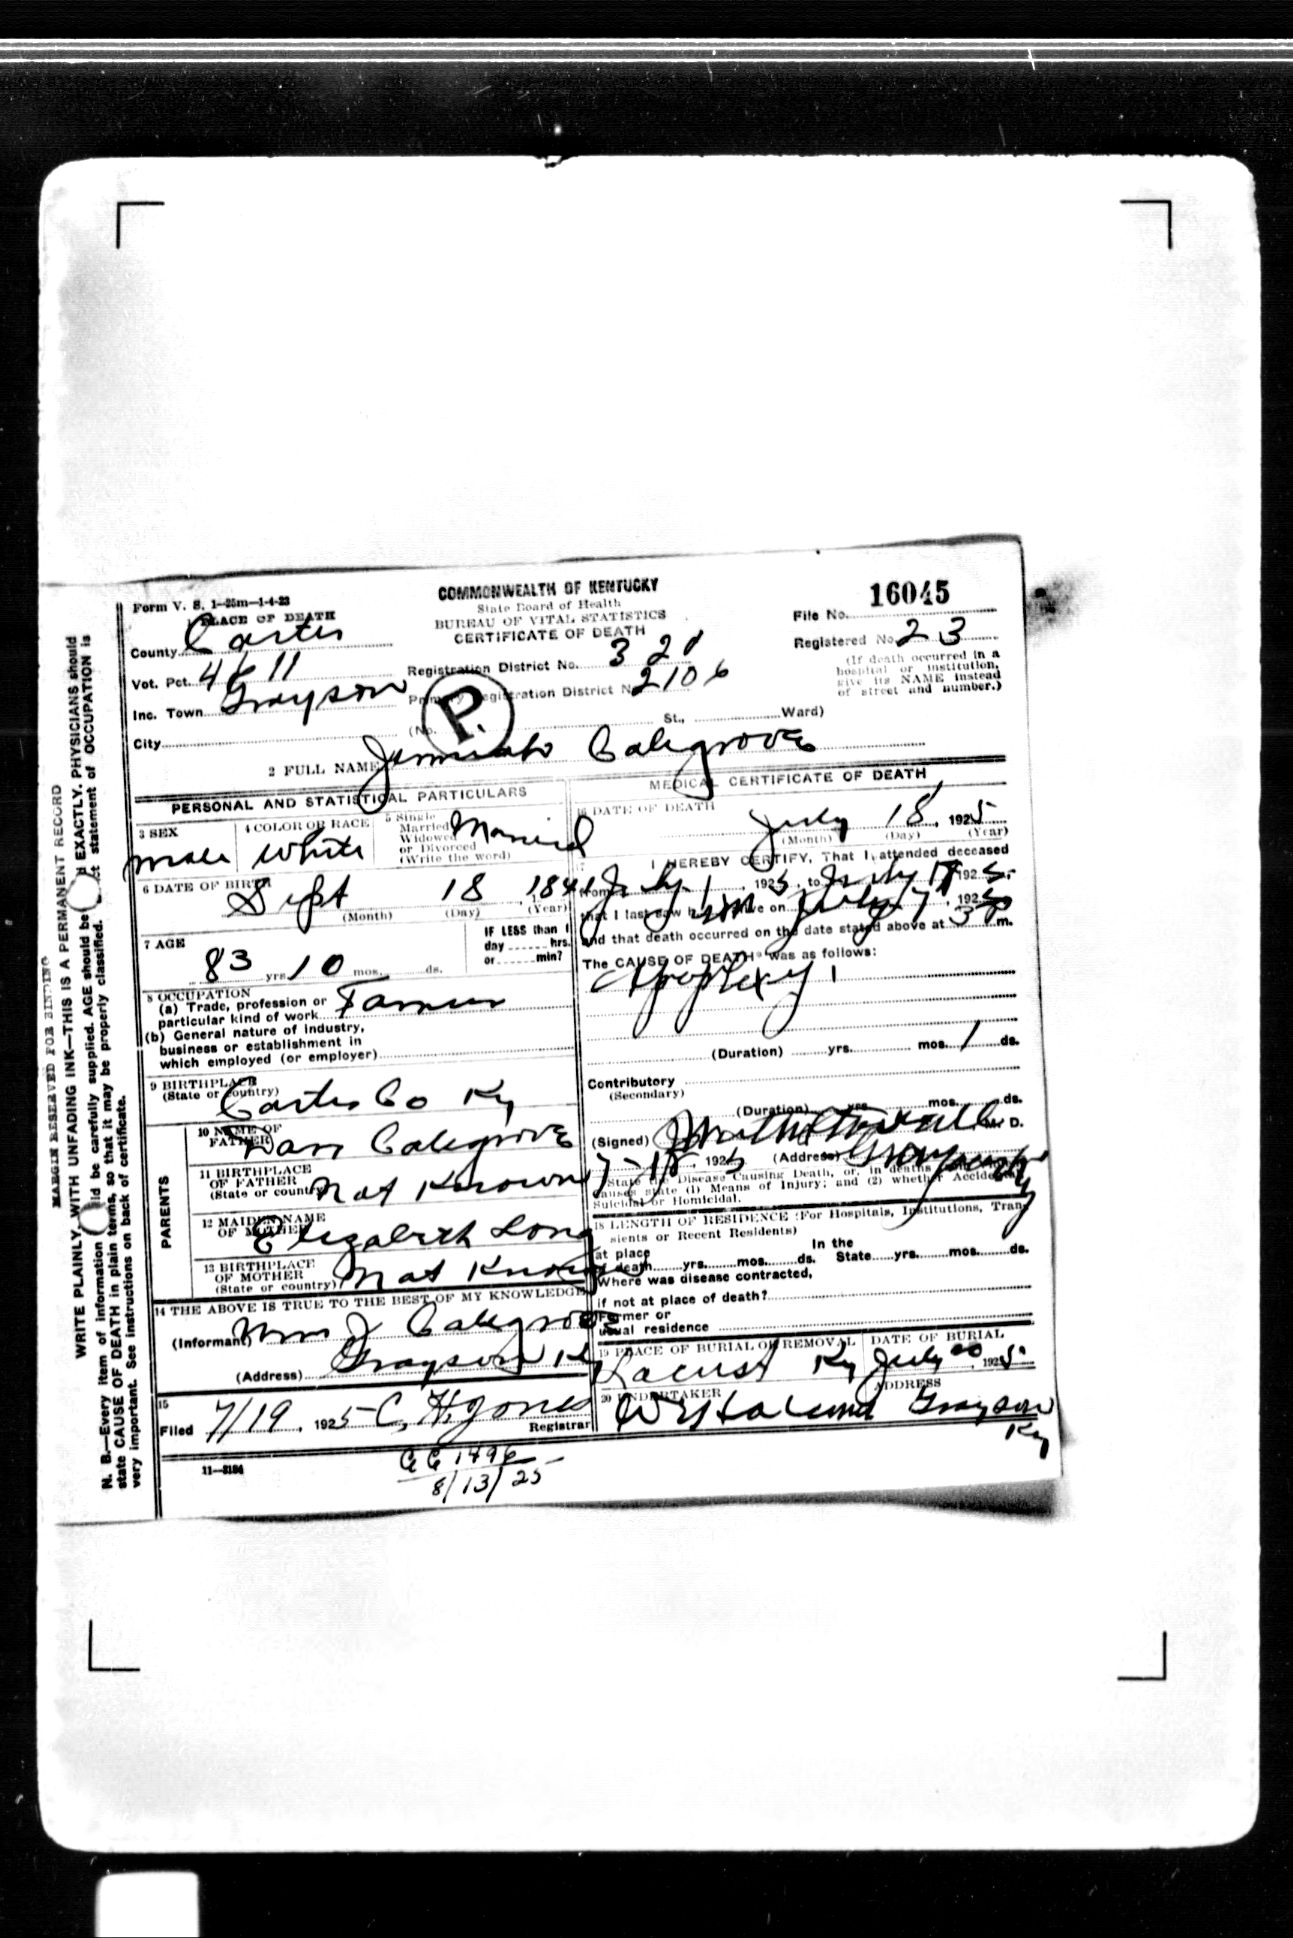 Form V. S. 1-25m-1-4-23
PLACE OF DEATH
County Carter
Vot. Pct. 4611
Inc. Town Grayson
City
COMMONWEALTH OF KENTUCKY
State Board of Health
BUREAU OF VITAL STATISTICS
CERTIFICATE OF DEATH
Registration District No. 321
Primary Registration District No. 2106
(No. St., Ward)
P.
16045
File No.
Registered No. 23
(If death occurred in a
hospital or institution,
give its NAME instead
of street and number.)
2 FULL NAME Calegrove
PERSONAL AND STATISTICAL PARTICULARS
3 SEX
male
4 COLOR OR RACE
White
5 Single
Married
Widowed
or Divorced
(Write the word)
Married
6 DATE OF BIRTH
Sept 18, 1841
(Month) (Day) (Year)
7 AGE
83 yrs. 10 mos. ds.
IF LESS than 1
day hrs.
or min?
8 OCCUPATION
(a) Trade, profession or
particular kind of work Farmer
(b) General nature of industry,
business or establishment in
which employed (or employer)
9 BIRTHPLACE
(State or country)
Carter Co Ky
PARENTS
10 NAME OF
FATHER
Dan Calegrove
11 BIRTHPLACE
OF FATHER
(State or country)
Not Known
12 MAIDEN NAME
OF MOTHER
Elizabeth Long
13 BIRTHPLACE
OF MOTHER
(State or country)
Not Known
14 THE ABOVE IS TRUE TO THE BEST OF MY KNOWLEDGE
(Informant) Wm J Calegrove
(Address) Grayson Ky
15
Filed 7/19, 1925 C, H, Jones
Registrar
11-3184
8/13/25
MEDICAL CERTIFICATE OF DEATH
16 DATE OF DEATH
July 18, 1925
(Month) (Day) (Year)
17
I HEREBY CERTIFY, That I attended deceased
from July 1, 1925, to July 17, 1925.
that I last saw him alive on July 17, 1925
and that death occurred on the date stated above at 3 P m.
The CAUSE OF DEATH* was as follows:
Apoplexy
(Duration) yrs. mos. 1 ds.
Contributory
(Secondary)
(Duration) yrs. mos. ds.
(Signed) M. D.
7-18, 1925 (Address) Grayson Ky
*State the Disease Causing Death, or, in deaths
Causes state (1) Means of Injury; and (2) whether Accidental,
Suicidal or Homicidal.
18 LENGTH OF RESIDENCE (For Hospitals, Institutions, Tran-
sients or Recent Residents)
at place In the
of death yrs. mos. ds. State yrs. mos. ds.
Where was disease contracted,
if not at place of death?
Former or
usual residence
19 PLACE OF BURIAL OR REMOVAL
Locust Ky
DATE OF BURIAL
July 20, 1925
20 UNDERTAKER
ADDRESS
Grayson
Ky
MARGIN RESERVED FOR BINDING
WRITE PLAINLY, WITH UNFADING INK—THIS IS A PERMANENT RECORD
N. B.—Every item of information should be carefully supplied. AGE should be stated EXACTLY. PHYSICIANS should
state CAUSE OF DEATH in plain terms, so that it may be properly classified. Exact statement of OCCUPATION is
very important. See instructions on back of certificate.